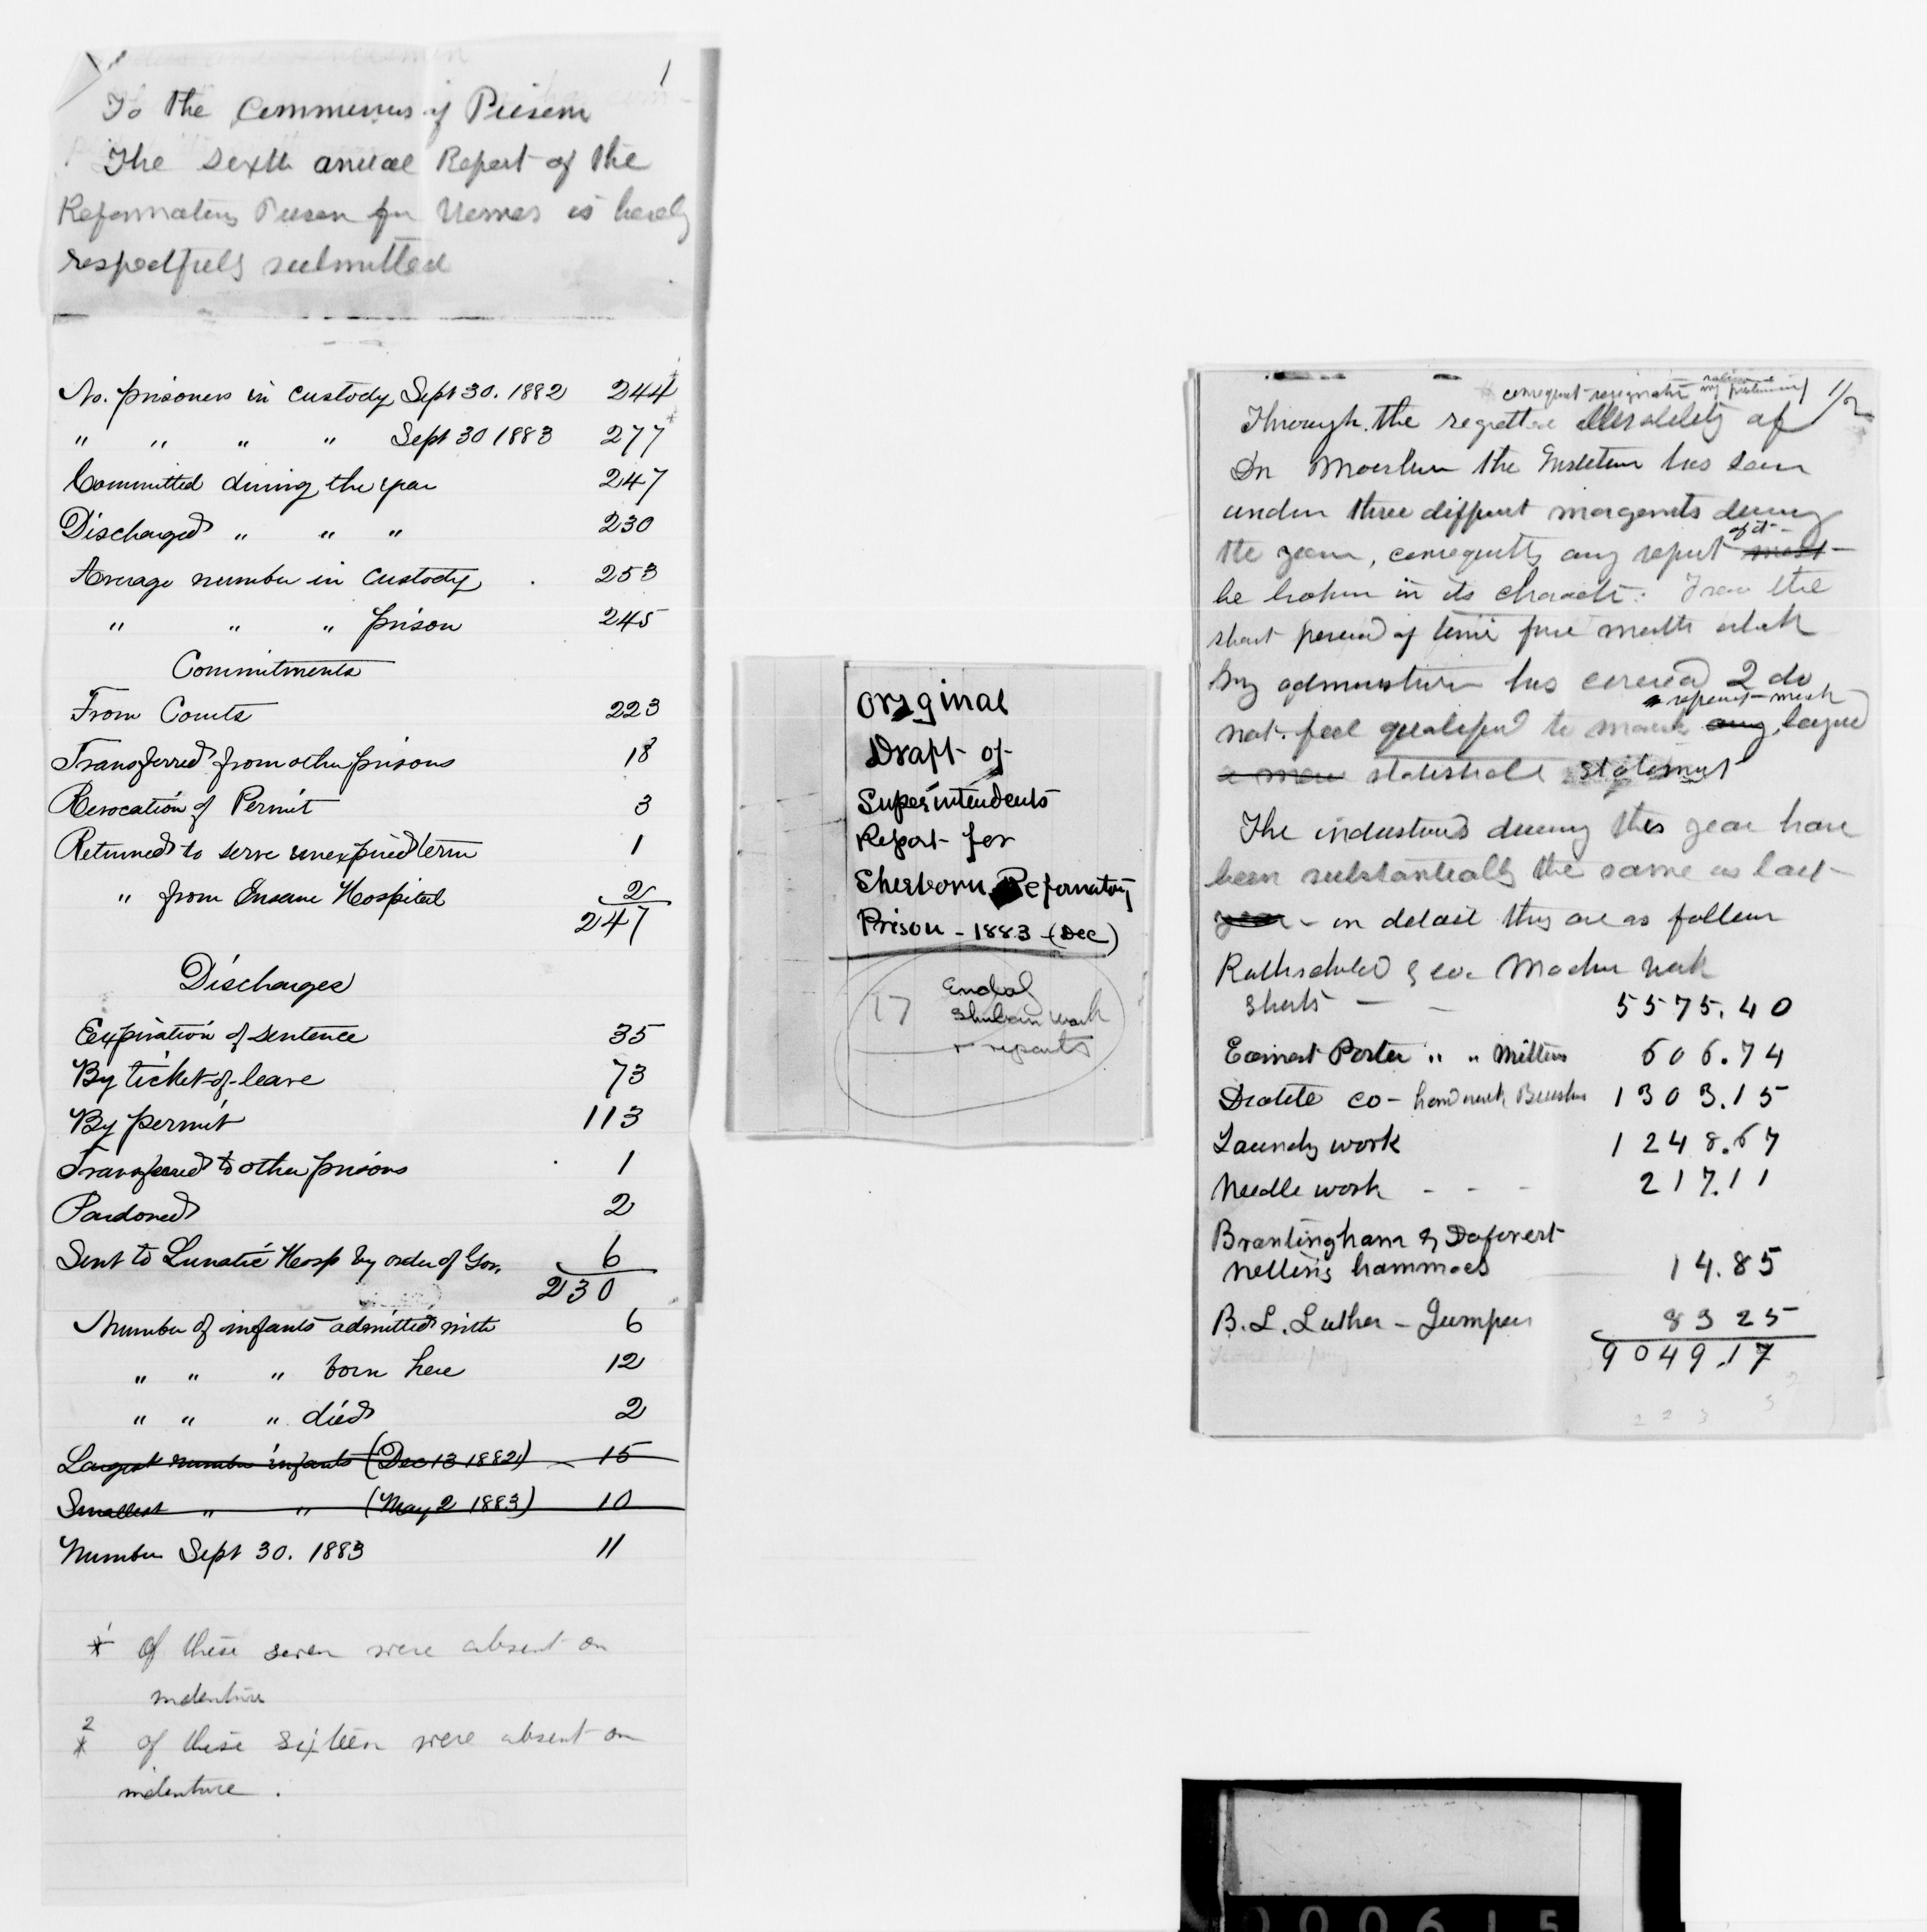 1
To the Commissners of Prisons
The sixth annual Report of the
Reformatory Prison for Women is hereby
respectfully submitted
No. prisoners in custody Sept 30. 1882 244
" " " " Sept 30 1883 277
Committed during the year 247
Discharged " " " 230
Average number in custody . 253
" " " prison 245
Commitments
From Courts 223
Transferred from other prisons 18
Revocation of Permit 3
Returned to serve unexpired term 1
" from Insane Hospital 2
247
Discharges
Expiration of sentence 35
By ticket-of-leave 73
By permit 113
Transferred to other prisons 1
Pardoned 2
Sent to Lunatic Hosp by order of Gov. 6
230
Number of infants admitted with 6
" " " born here 12
" " " died 2
Largest number infants (Dec 13 1882) 15
Smallest " " (May 2 1883) 10
Number Sept 30. 1883 11
*1 Of these seven were absent on
indenture
*2 of these sixteen were absent on
indenture.
Original
Draft of
Superintendents
Report for
Sherborn Reformatory
Prison - 1883 - (Dec)
17
Sherborn work
+ reports
1/2
consequent resignation
Through the regretted of
Dr the Institution has been
under three different managements during
the year, consequently any report of it must
be broken in its character. From the
short period of time five months which
my administration has covered I do
not feel qualified to make any beyond
a mere statistical statement
The industries during this year have
been substantially the same as last
year - in detail they are as follows
& co. work
Shirts - - 5575.40
Earnest Porter " " Mittens 606.74
co - hand work Brushes 1303.15
Laundry work 1248.67
Needle work - - - 217.11
Brantingham &
netting hammocs 14.85
B. L. Luther - Jumpers 83 25
9049.17
000615